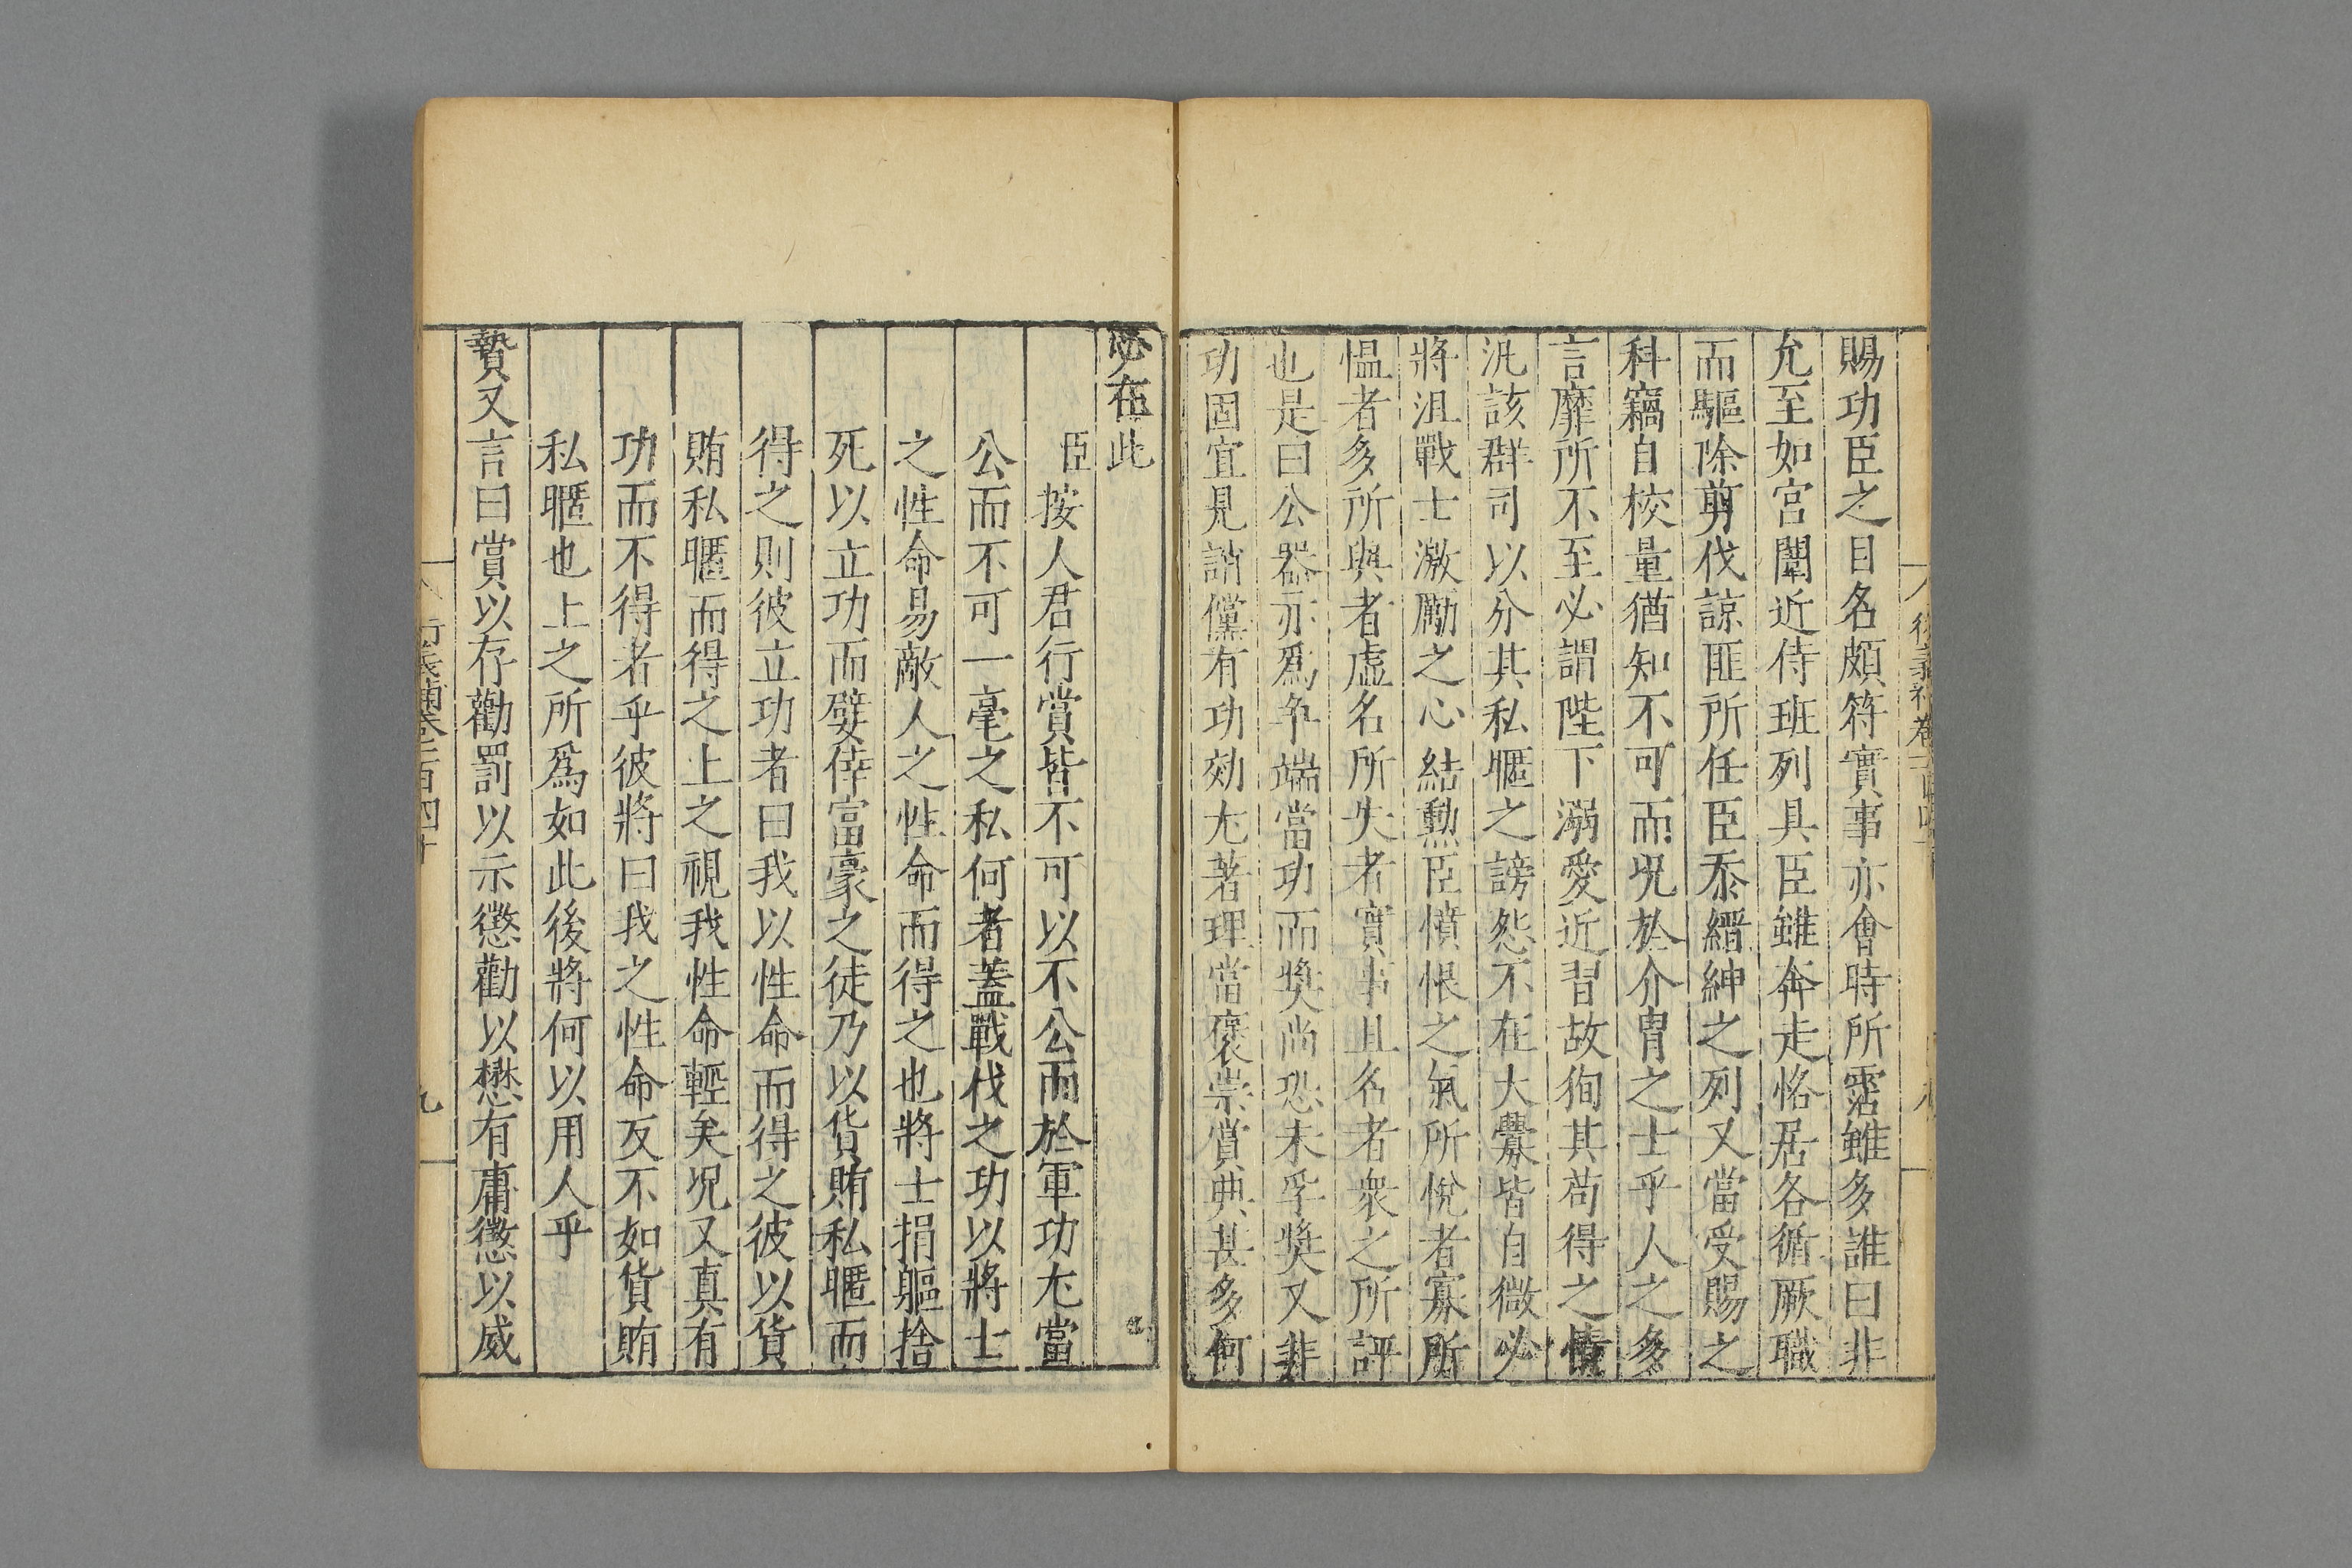 賜功臣之目名頗符實事亦會時所霑雖多誰曰非
允至如宮闈近侍班列具臣雖奔走恪居各循厥職
而驅除剪伐諒匪所任臣忝縉紳之列又當受賜之
科竊自校量猶知不可而況於介冑之士乎人之多
言靡所不至必謂陛下溺愛近習故徇其苟得之情
汎該群司以分其私暱之謗怨不在大釁皆自微必
將沮戰士激勵之心結勳臣憤恨之氣所悅者寡所
愠者多所與者虛名所失者實事且名者衆之所評
也是曰公器亦爲争端當功而奬尚恐未孚奬又非
功固宜見誚儻有功効尤著理當褒崇賞典甚多何
必在此
臣按人君行賞皆不可以不公而於軍功尤當
公而不可一毫之私何者蓋戰伐之功以將士
之性命易敵人之性命而得之也將士捐軀捨
死以立功而嬖倖富豪之徒乃以貨賄私暱而
得之則彼立功者曰我以性命而得之彼以貨
賄私暱而得之上之視我性命輕矣況又真有
功而不得者乎彼將曰我之性命反不如貨賄
私暱也上之所爲如此後將何以用人乎
贄又言曰賞以存勸罰以示懲勸以懋有庸懲以威
衍義補卷一百四十
九